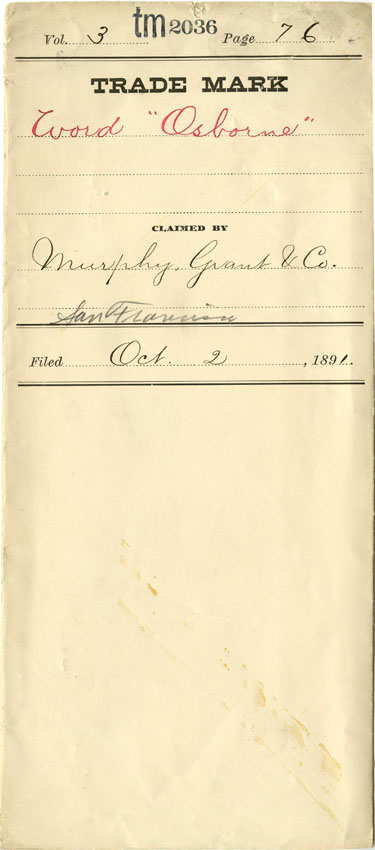 Vol. 3 tm 2036 Page 76
TRADE MARK
Word "Osborne"
CLAIMED BY
Murphy, Grant & Co.
San Francisco
Filed Oct. 2, 1891.